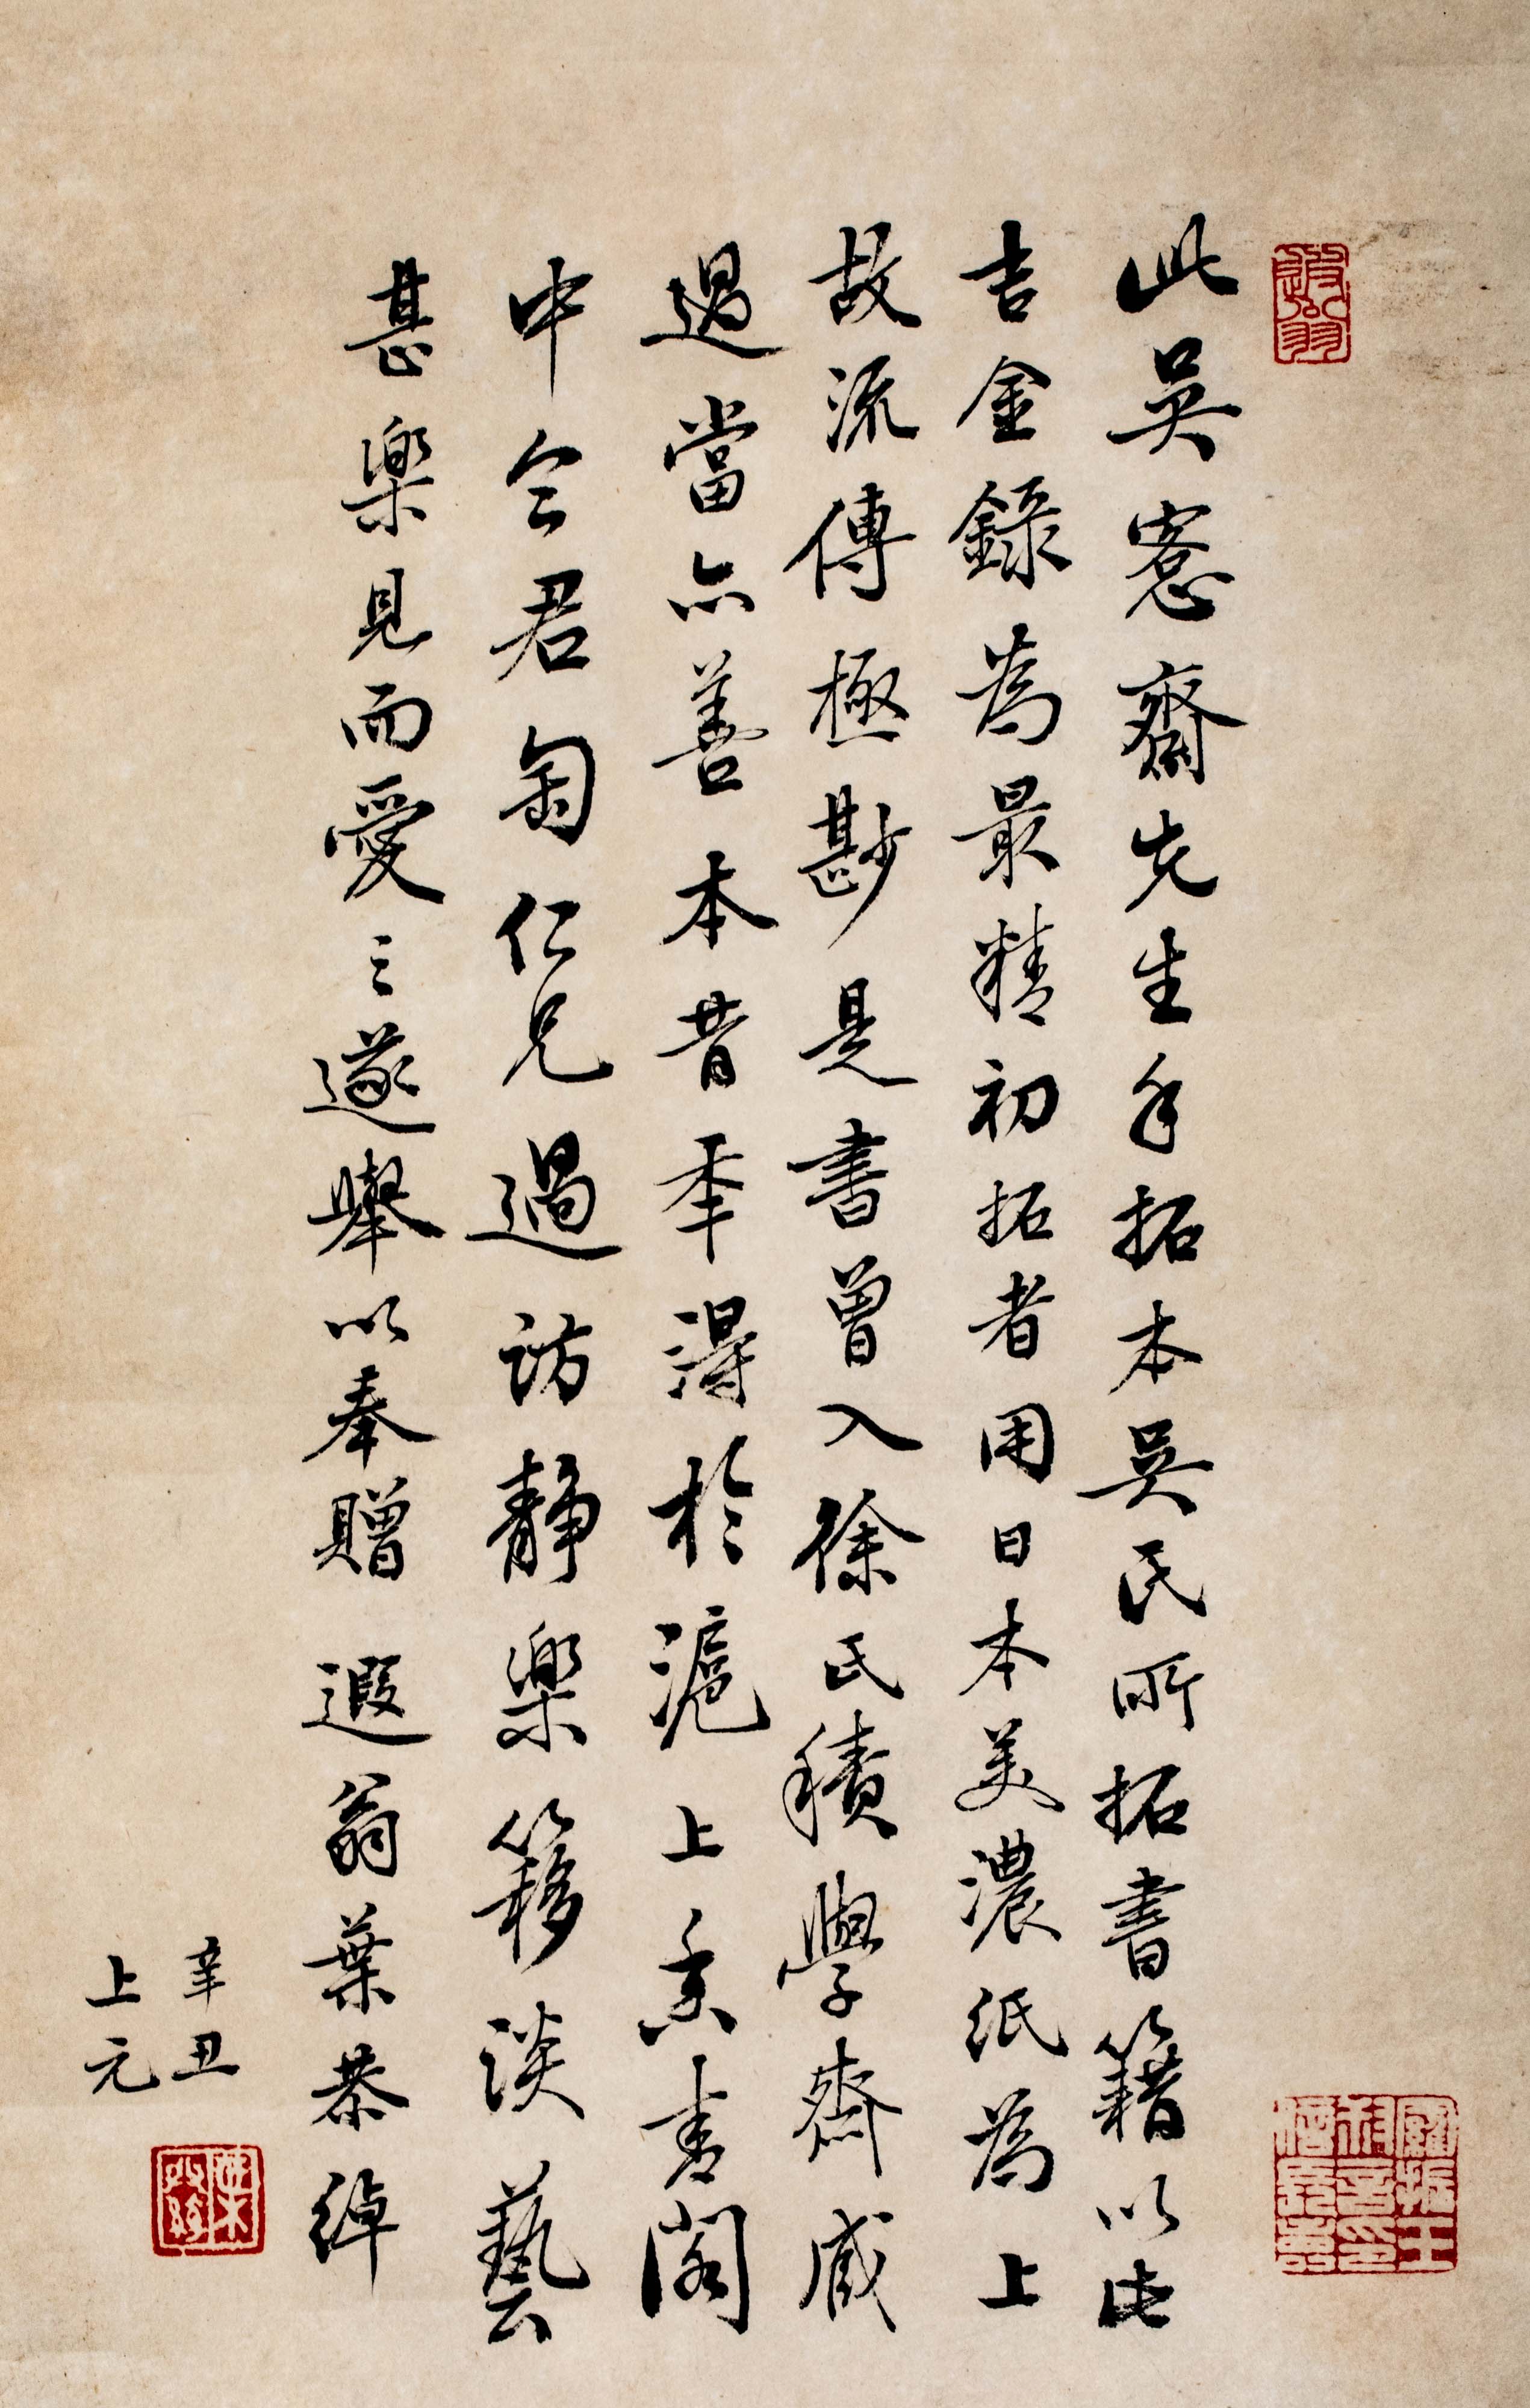 此吳愙齋先生手拓本吳氏所拓書籍以此
吉金錄為最精初拓者用日本美濃紙為上
故流傳極尠是書曾入徐氏積學齋咸
過當亦善本昔年得於滬上來青閣
中仝君匋仁兄過訪靜樂簃談藝
甚樂見而愛之遂舉以奉贈 遐翁葉恭綽
辛丑
上元
遐翁